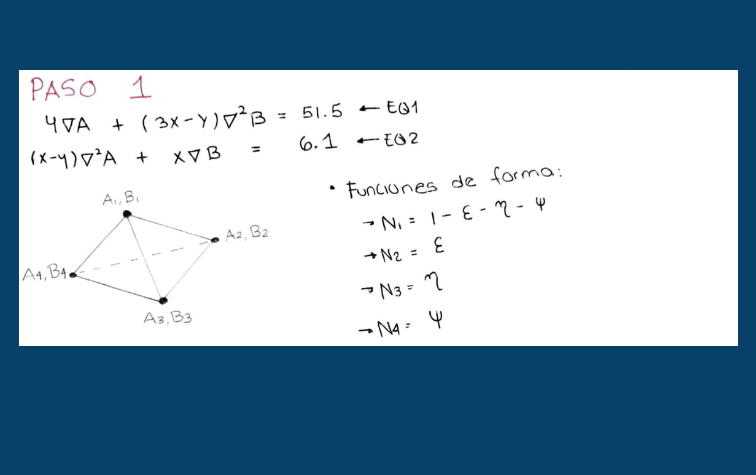 PASO 1
4∇A + (3x-y)∇²B = 51.5 ← EQ1
(x-y)∇²A + x∇B = 6.1 ← EQ2
A1, B1
A2, B2
A4, B4
A3, B3
• Funciones de forma:
→ N1 = 1 - ε - η - ψ
→ N2 = ε
→ N3 = η
→ N4 = ψ